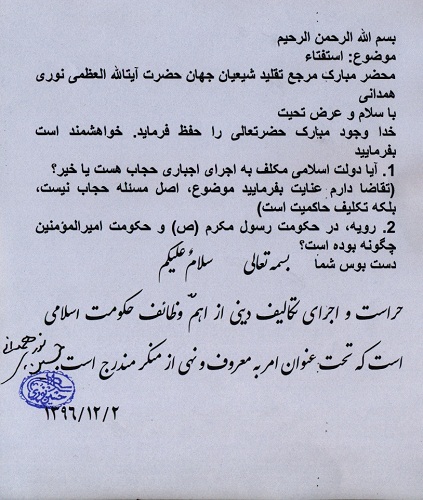 بسم الله الرحمن الرحیم
موضوع: استفتاء
محضر مبارک مرجع تقلید شیعیان جهان حضرت آیتالله العظمی نوری
همدانی
با سلام و عرض تحیت
خدا وجود مبارک حضرتعالی را حفظ فرماید. خواهشمند است
بفرمایید
1. آیا دولت اسلامی مکلف به اجرای اجباری حجاب هست یا خیر؟
(تقاضا دارم عنایت بفرمایید موضوع، اصل مسئله حجاب نیست،
بلکه تکلیف حاکمیت است)
2. رویه، در حکومت رسول مکرم (ص) و حکومت امیرالمؤمنین
چگونه بوده است؟
دست بوس شما
بسمه تعالی سلام علیکم
حراست و اجرای تکالیف دینی از اهم وظائف حکومت اسلامی
است که تحت عنوان امر به معروف و نهی از منکر مندرج است.
حسین نوری همدانی
۱۳۹۶/۱۲/۲